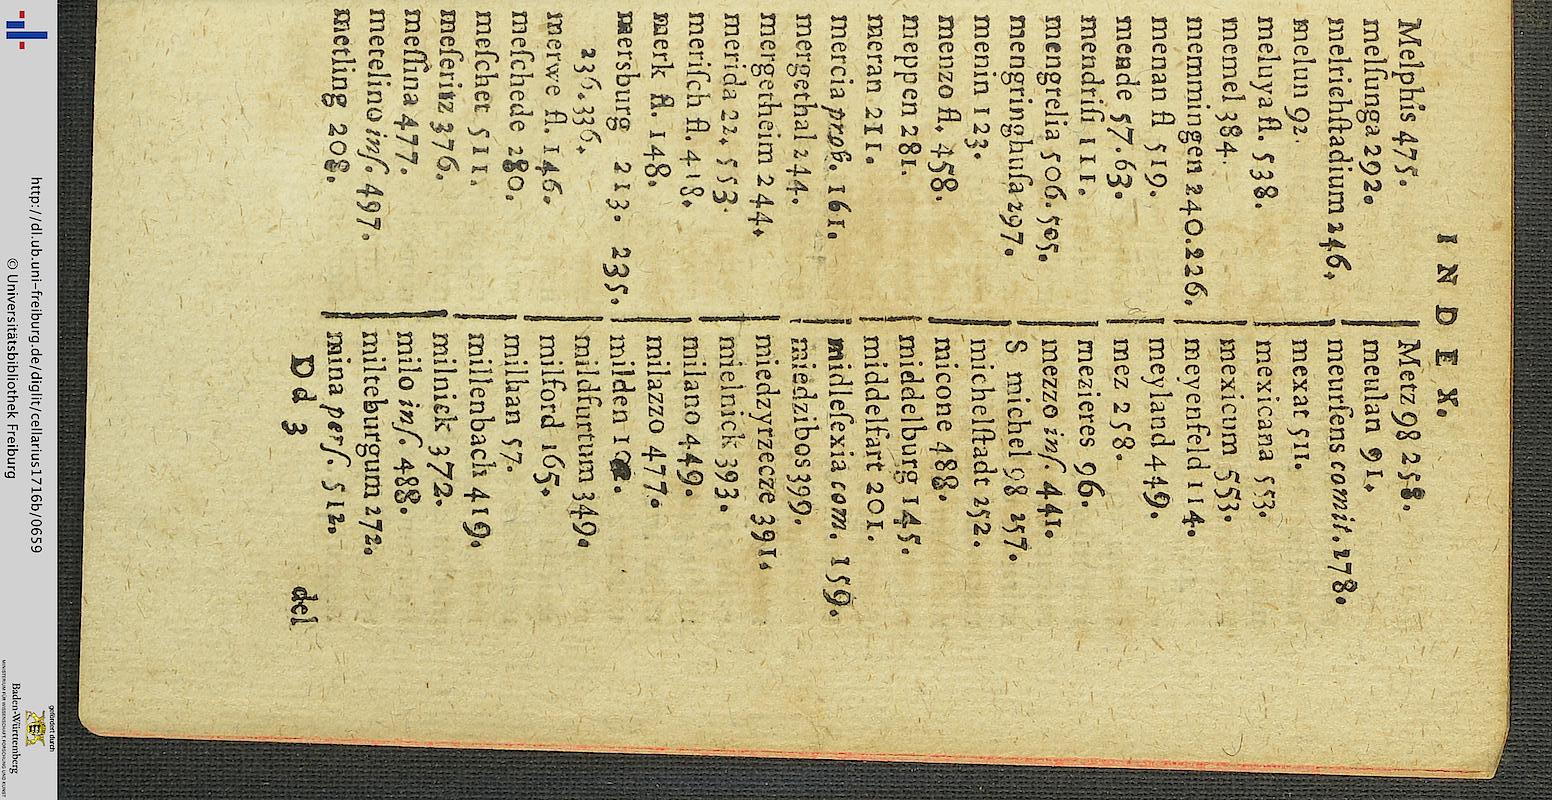 INDEX.
Melphis 475.
melſunga 292.
melrichſtadium 246.
melun 92.
meluya fl. 538.
memel 384.
memmingen 240.226.
menan fl 519.
mende 57.63.
mendriſi 111.
mengrelia 506.505.
mengringhuſa 297.
menin 123.
menzo fl. 458.
meppen 281.
meran 211.
mercia prob. 161.
mergethal 244.
mergetheim 244.
merida 22. 553.
meriſch fl. 418.
merk fl. 148.
mersburg 213. 235.
236.336.
merwe fl. 146.
meſchede 280.
meſchet 511.
meſeritz 376.
meſſina 477.
metelino inſ. 497.
metling 208.
Metz 98 258.
meulan 91.
meurſens comit. 278.
mexat 511.
mexicana 553.
mexicum 553.
meyenfeld 114.
meyland 449.
mez 258.
mezieres 96.
mezzo inſ. 441.
S michel 98 257.
michelſtadt 252.
micone 488.
middelburg 145.
middelfart 201.
midleſexia com. 159.
miedzibos 399.
miedzyrzecze 391.
mielnick 393.
milano 449.
milazzo 477.
milden
mildfurtum 349.
milford 165.
milhan 57.
millenbach 419.
milnick 372.
milo inſ. 488.
milteburgum 272.
mina perſ. 512.
Dd 3
del
http://dl.ub.uni-freiburg.de/diglit/cellarius1716b/0659
© Universitätsbibliothek Freiburg
gefördert durch
Baden-Württemberg
MINISTERIUM FÜR WISSENSCHAFT, FORSCHUNG UND KUNST